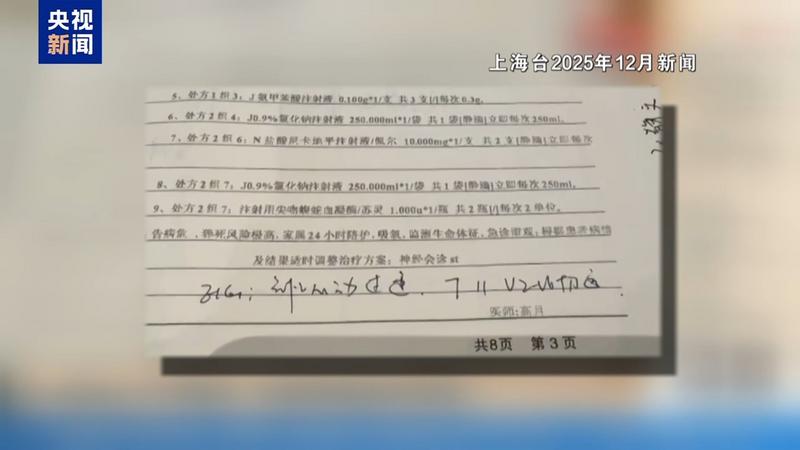 央视
新闻
上海台2025年12月新闻
5、处方1组3：J氨甲苯酸注射液 0.100g*1/支 共3支[/]每次0.3g。
6、处方2组4：J0.9%氯化钠注射液 250.000ml*1/袋 共1袋[静滴]立即每次250ml。
7、处方2组6：N盐酸尼卡地平注射液/佩尔 10.000mg*1/支 共2支[静滴]立即每次
8、处方2组7：J0.9%氯化钠注射液 250.000ml*1/袋 共1袋[静滴]立即每次250ml。
9、处方2组7：注射用尖吻蝮蛇血凝酶/苏灵 1.000u*1/瓶 共2瓶[/]每次2单位。
告病危，猝死风险极高，家属24小时陪护，吸氧，监测生命体征，急诊留观；根据患者病情
及结果适时调整治疗方案；神经会诊st
医师：高月
共8页 第3页